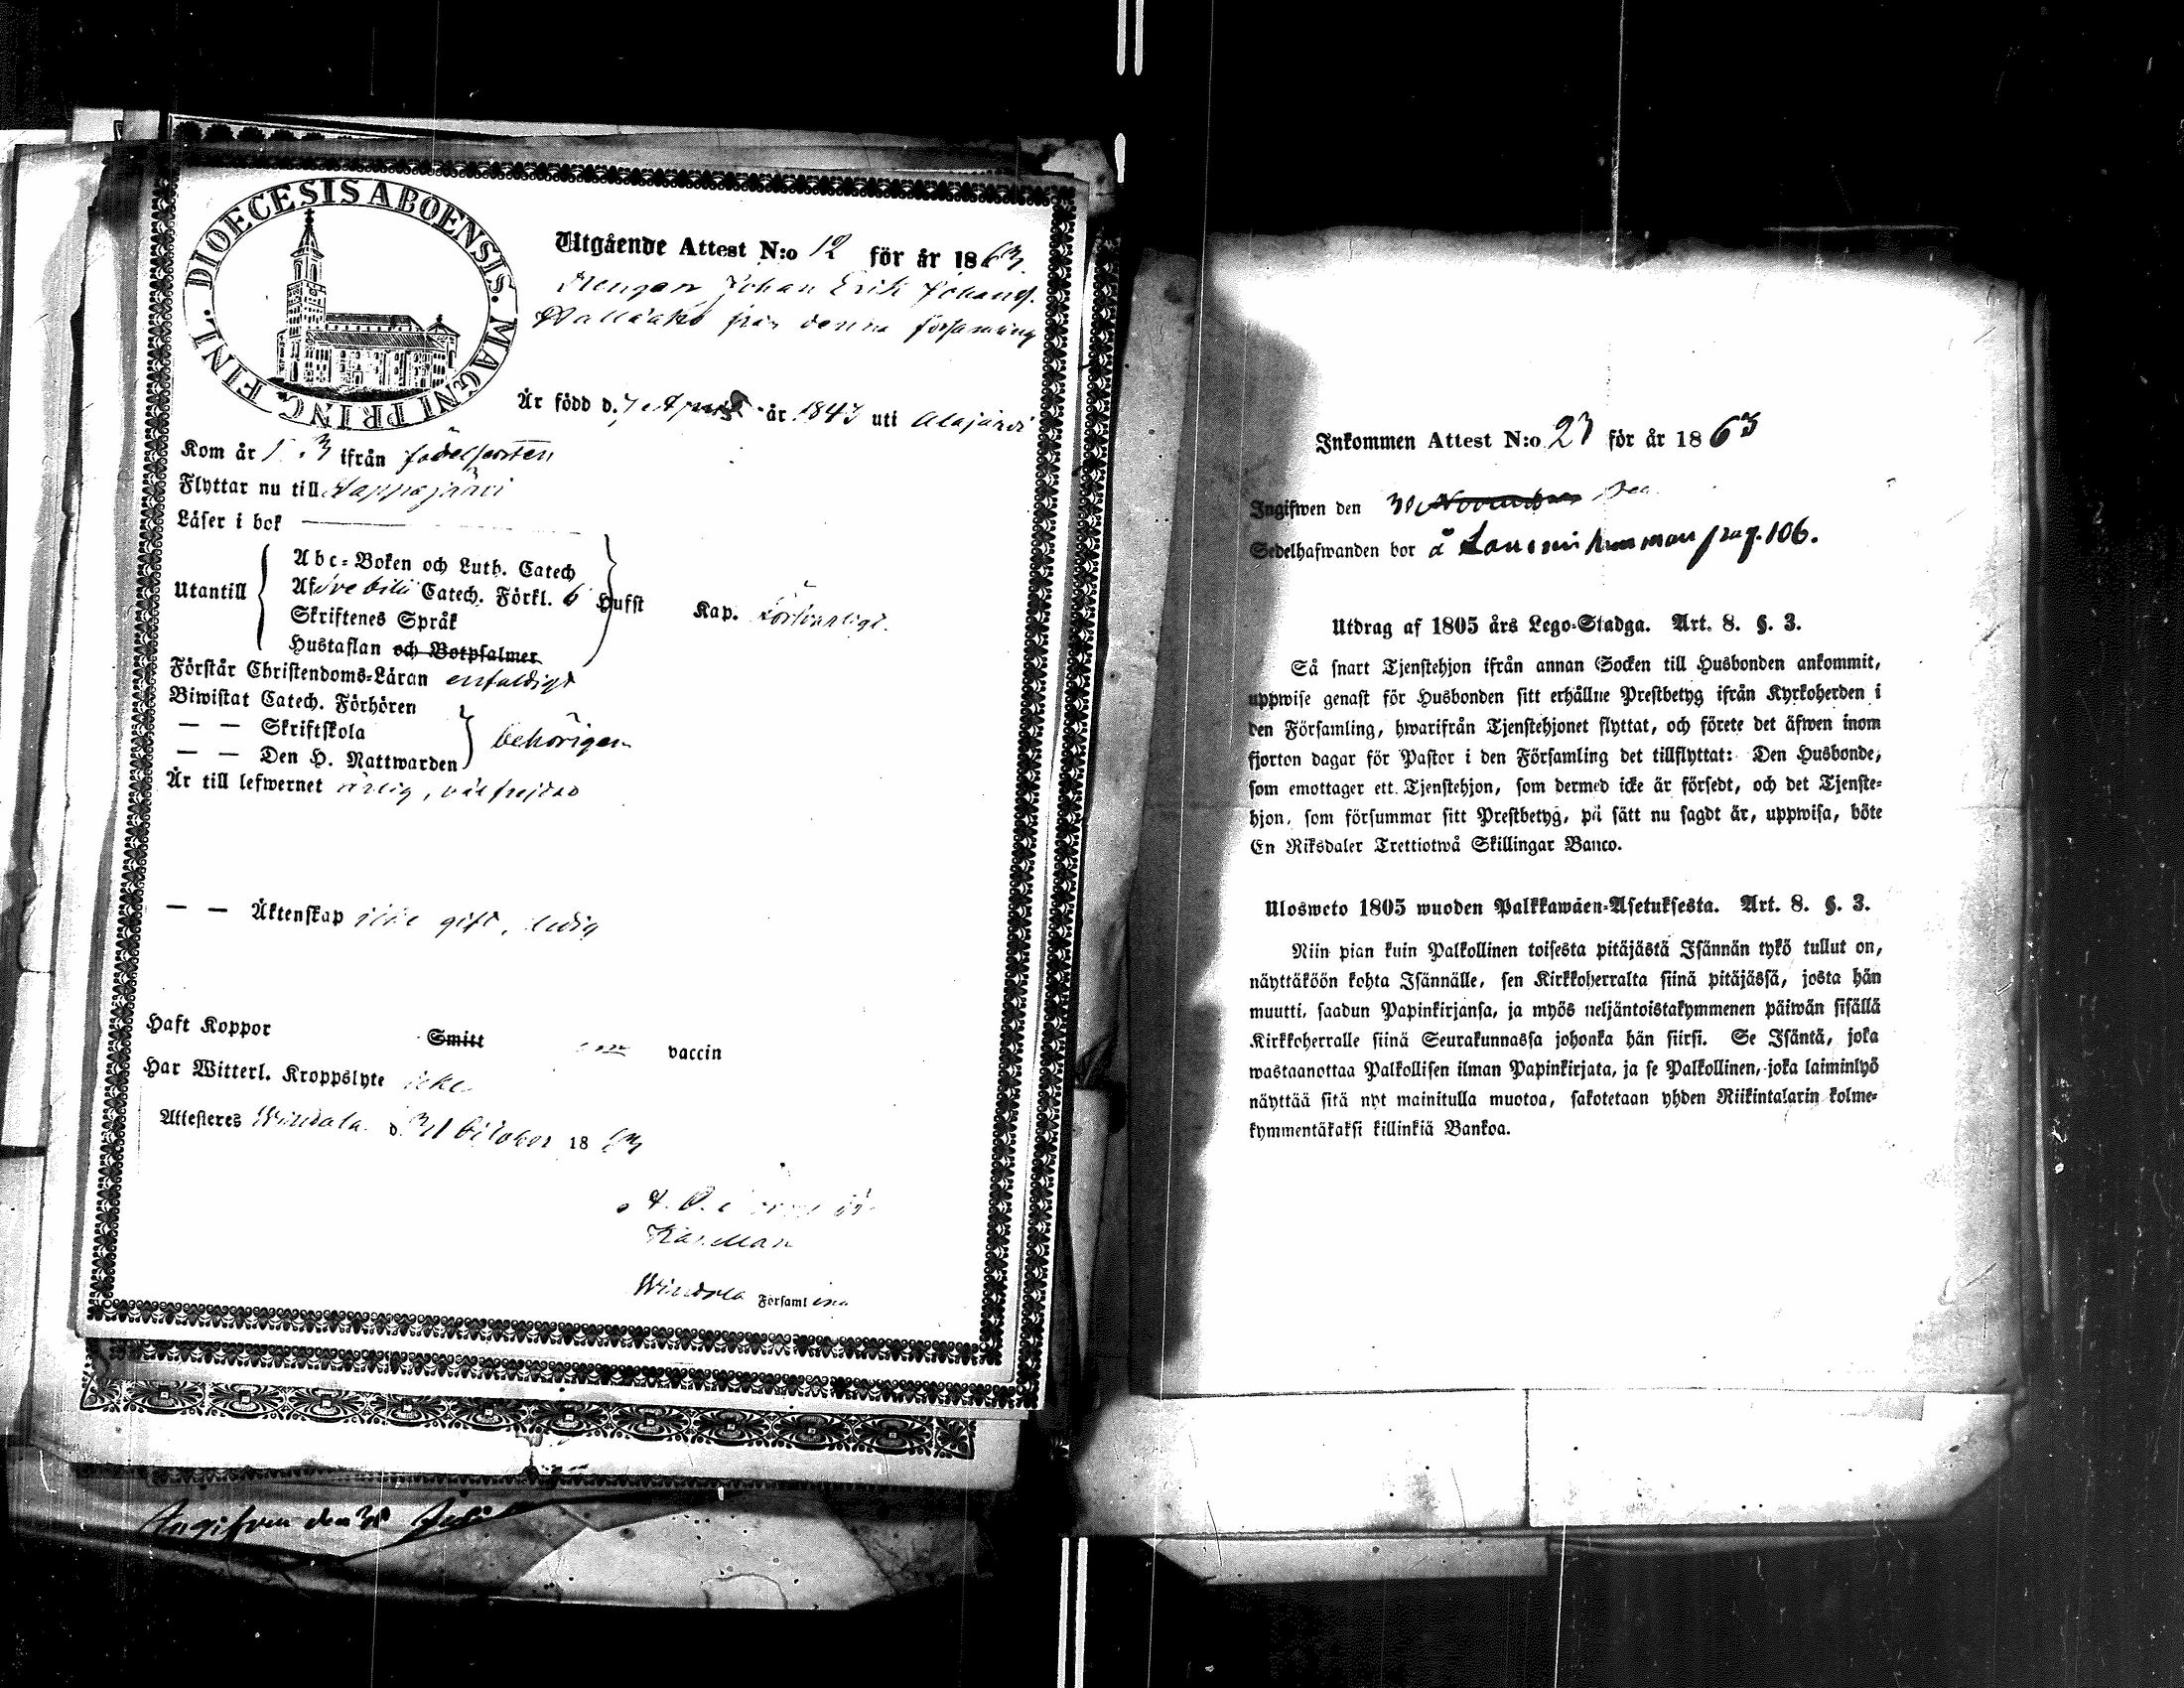 DIOECESIS ABOENSIS. MAGNI PRINC. FINL.
Utgående Attest N:o 12 för år 1863.
Drengen Johan Erik Johans.
från denna församling
Är född d. 7 April år 1843 uti Alajärvi
Kom år ifrån födelseorten
Flyttar nu till Lappajärvi
Läser i bok
Utantill
Abc-Boken och Luth. Catech
Afsvebilii Catech. Förkl. 6 Hufst Kap. försvarligt.
Skriftenes Språk
Hustaflan och Botpsalmer
Förstår Christendoms-Läran enfaldigt
Biwistat Catech. Förhören
— — Skriftskola
— — Den H. Nattwarden
behörigen
Är till lefwernet ärlig, välfrejdad
— — Äktenskap icke gift, ledig
Haft Koppor Smitt vaccin
Har Witterl. Kroppslyte icke
Attesteres Windala d. 31 October 1863
Windola Församling
Angifven den 30 Juli
Inkommen Attest N:o 23 för år 1863
Ingifwen den 30 November Dec.
Sedelhafwanden bor å pag. 106.
Utdrag af 1805 års Lego-Stadga. Art. 8. §. 3.
Så snart Tjenstehjon ifrån annan Socken till Husbonden ankommit,
uppwise genast för Husbonden sitt erhållne Prestbetyg ifrån Kyrkoherden i
den Församling, hwarifrån Tjenstehjonet flyttat, och förete det äfwen inom
fjorton dagar för Pastor i den Församling det tillflyttat: Den Husbonde,
som emottager ett Tjenstehjon, som dermed icke är försedt, och det Tjenste-
hjon, som försummar sitt Prestbetyg, på sätt nu sagdt är, uppwisa, böte
En Riksdaler Trettiotwå Skillingar Banco.
Ulosweto 1805 wuoden Palkkawäen-Asetuksesta. Art. 8. §. 3.
Niin pian kuin Palkollinen toisesta pitäjästä Isännän tykö tullut on,
näyttäköön kohta Isännälle, sen Kirkkoherralta siinä pitäjässä, josta hän
muutti, saadun Papinkirjansa, ja myös neljäntoistakymmenen päiwän sisällä
Kirkkoherralle siinä Seurakunnassa johonka hän siirsi. Se Isäntä, joka
wastaanottaa Palkollisen ilman Papinkirjata, ja se Palkollinen, joka laiminlyö
näyttää sitä nyt mainitulla muotoa, sakotetaan yhden Riikintalarin kolme-
kymmentäkaksi killinkiä Bankoa.